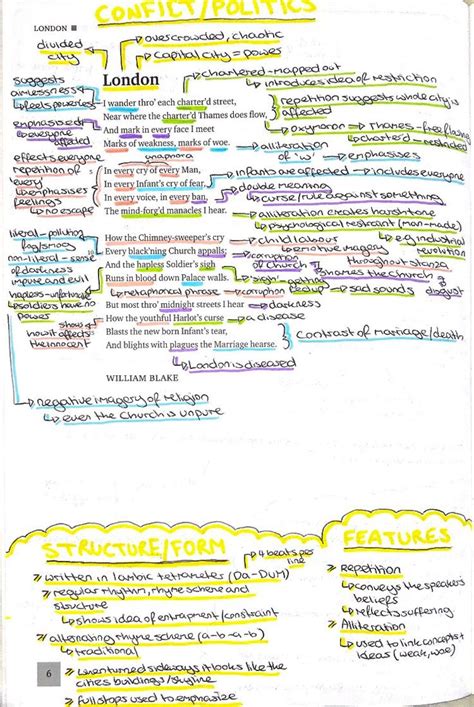 CONFICT/POLITICS
LONDON ■
divided city
overcrowded, chaotic
capital city = power
London
chartered - mapped out
introduces idea of restriction
suggests aimlessness
feels powerless
I wander thro' each charter'd street,
Near where the charter'd Thames does flow,
And mark in every face I meet
Marks of weakness, marks of woe.
repetition suggests whole city is affected
oxymoron → Thames - free flowing
charter'd - restricted
emphasised
everyone affected
alliteration of 'w'
emphasises
anaphora
effects everyone
repetition of every
emphasises feelings
no escape
In every cry of every Man,
In every Infant's cry of fear,
In every voice, in every ban,
The mind-forg'd manacles I hear.
infants are affected
includes everyone
double meaning
curse/rule against something
alliteration creates harsh tone
psychological restraint (man-made)
literal - pollution fog/smog
non-literal - sense of darkness
impure and evil
hapless - unfortunate
soldiers have no power
How the Chimney-sweeper's cry
Every black'ning Church appalls;
And the hapless Soldier's sigh
Runs in blood down Palace walls.
child labour
emotive imagery throughout stanza
e.g industrial revolution
corruption of Church
shames the Church
"sigh" - getting fed up
sad sounds
disgust
metaphorical phrase - corruption
But most thro' midnight streets I hear
How the youthful Harlot's curse
Blasts the new born Infant's tear,
And blights with plagues the Marriage hearse.
darkness
a disease
shows how it affects the innocent
contrast of marriage/death
London is diseased
WILLIAM BLAKE
negative imagery of religion
even the Church is unpure
STRUCTURE/FORM
4 beats per line
» written in Iambic tetrameter (Da-DUM)
» regular rhythm, rhyme scheme and structure
shows idea of entrapment/constraint
» alternating rhyme scheme (a-b-a-b)
traditional
» when turned sideways it looks like the cities buildings/skyline
» full stops used to emphasize
FEATURES
» Repetition
conveys the speakers beliefs
reflects suffering
» Alliteration
used to link concepts + ideas (weak, woe)
6